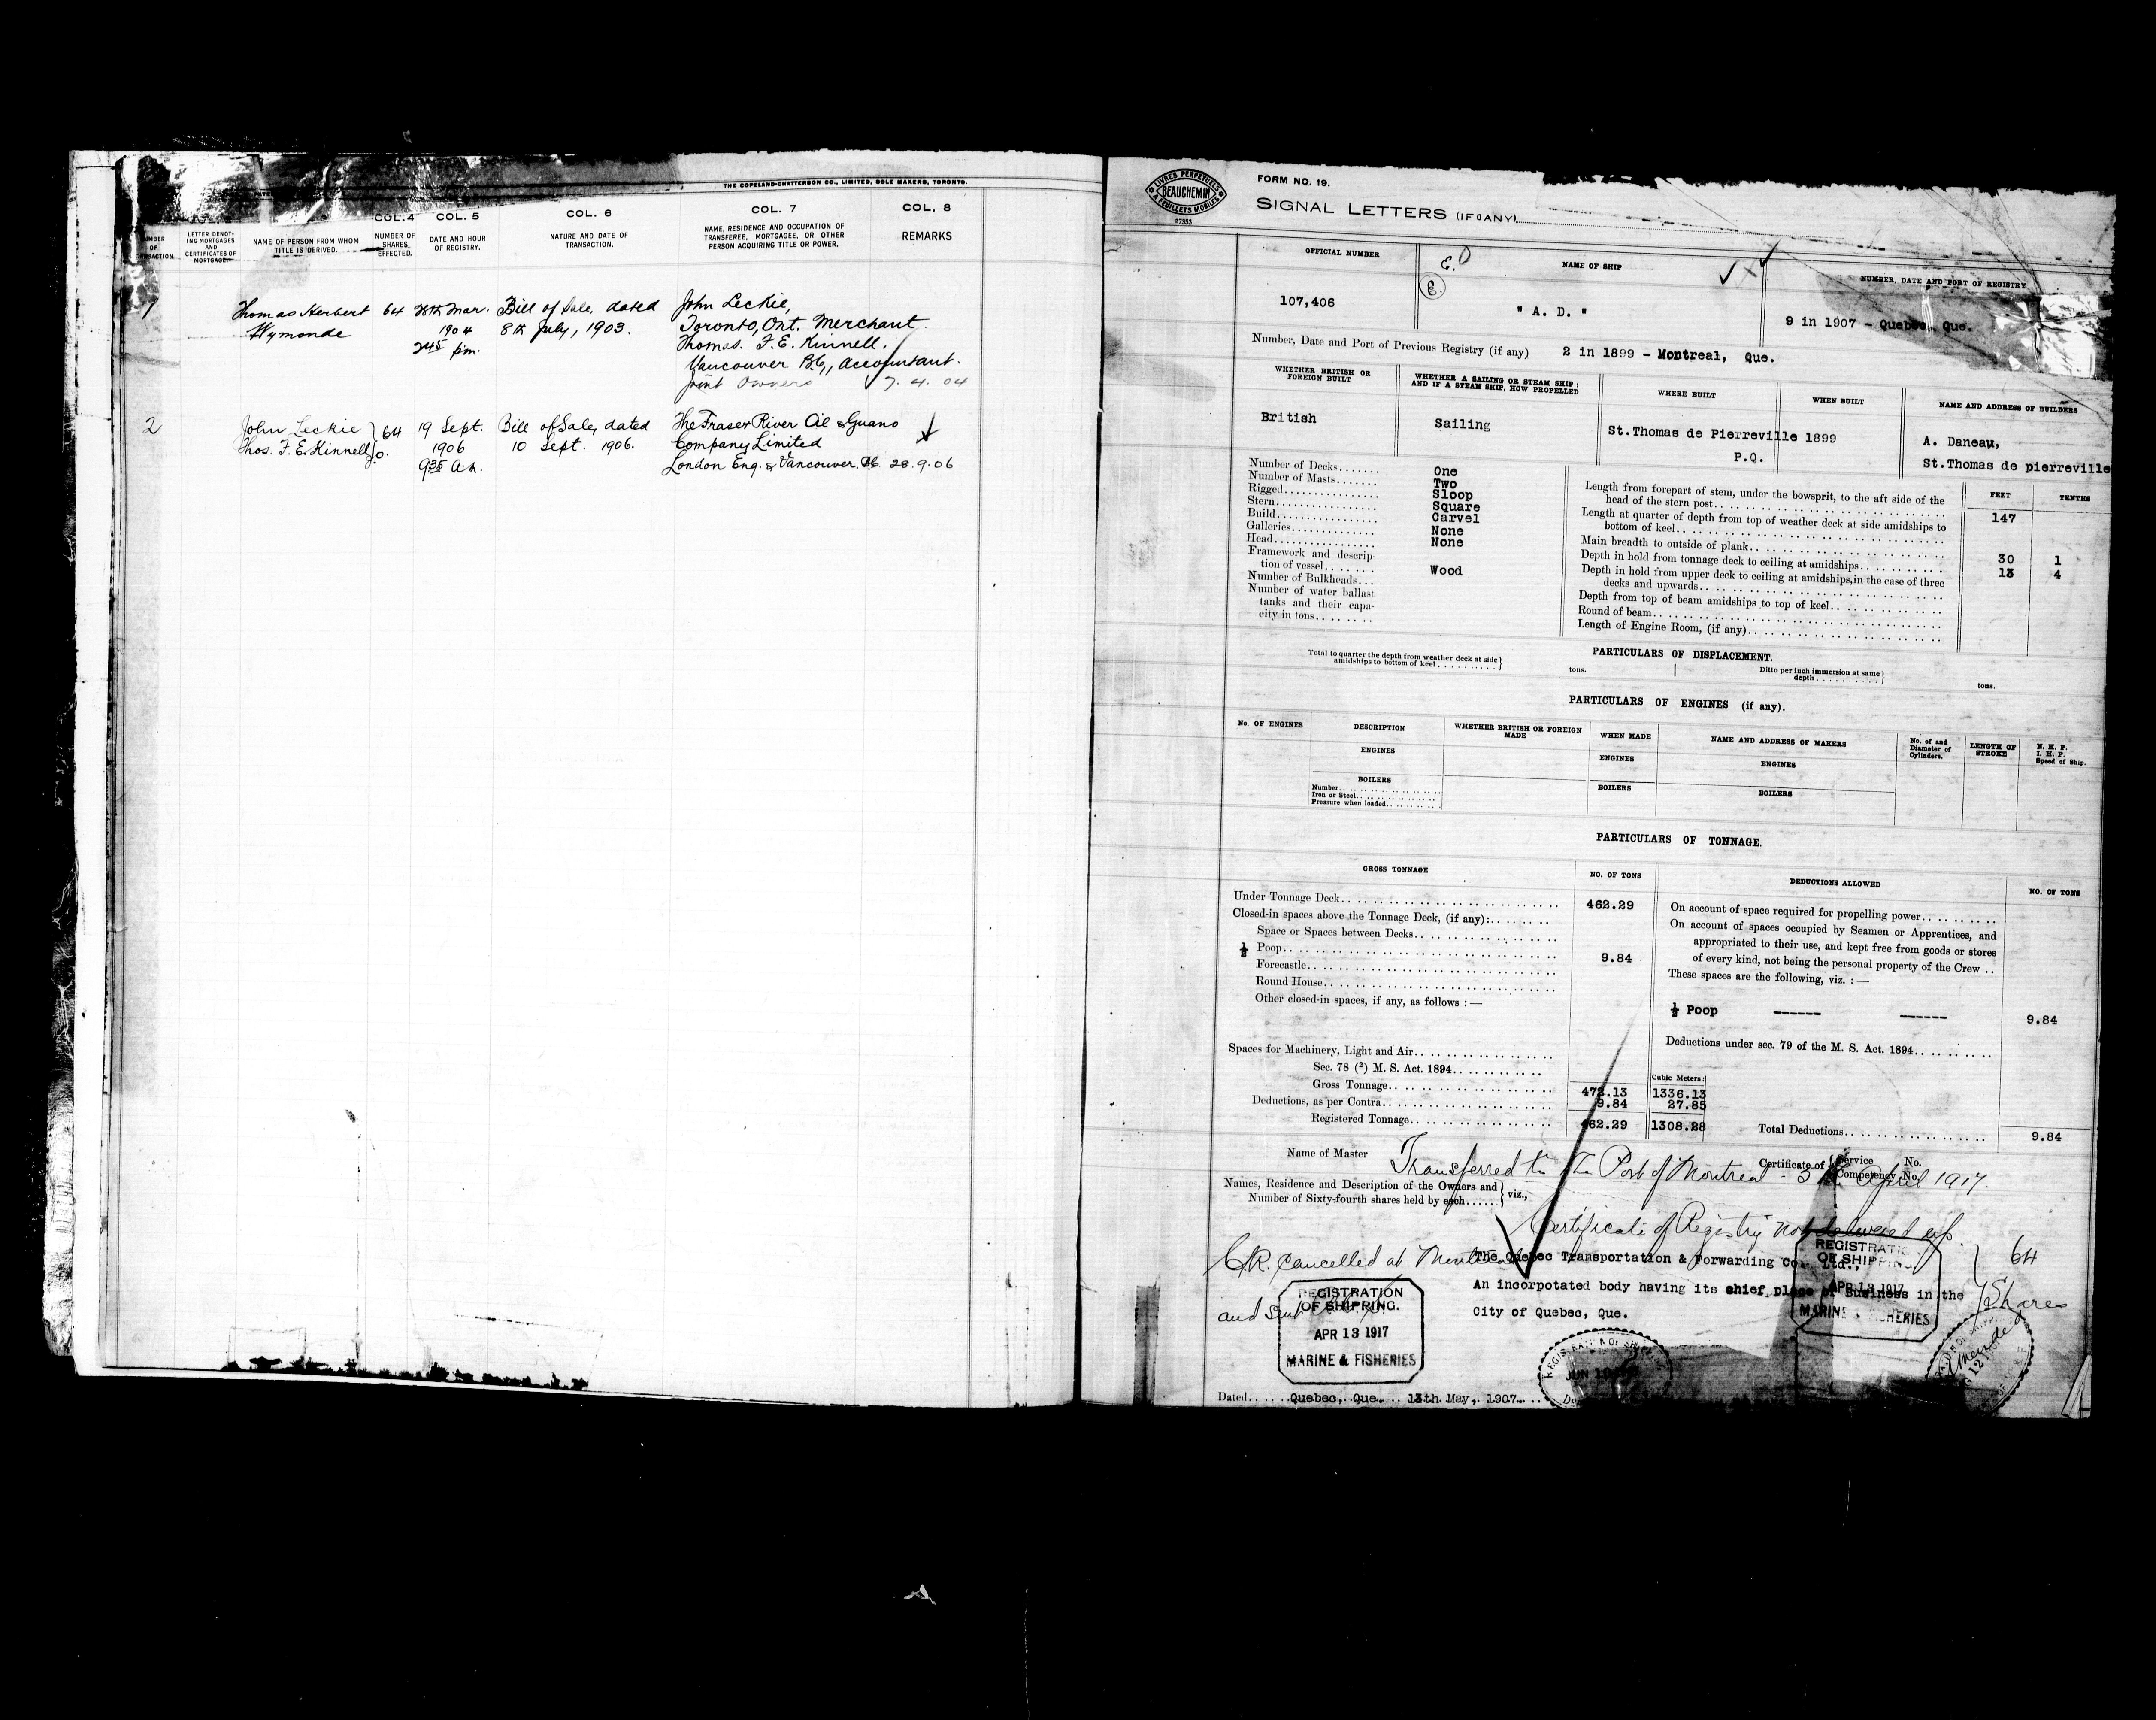 THE COPELAND-CHATTERSON CO., LIMITED, SOLE MAKERS, TORONTO.
COL. 4 COL. 5 COL. 6 COL. 7 COL. 8
LETTER DENOTING MORTGAGES AND CERTIFICATES OF MORTGAGE.
NAME OF PERSON FROM WHOM TITLE IS DERIVED.
NUMBER OF SHARES EFFECTED.
DATE AND HOUR OF REGISTRY.
NATURE AND DATE OF TRANSACTION.
NAME, RESIDENCE AND OCCUPATION OF TRANSFEREE, MORTGAGEE, OR OTHER PERSON ACQUIRING TITLE OR POWER.
REMARKS
1 Thomas Herbert 64 28th Mar. Bill of Sale, dated John Leckie,
Wymonde 1904 8th July, 1903. Toronto, Ont. Merchant.
2 45 p.m. Thomas. F. E. Kinnell,
Vancouver B.C., Accountant.
Joint Owners 7. 4. 04
2 John Leckie 64 19 Sept. Bill of Sale, dated The Fraser River Oil & Guano
Thos. F. E. Kinnell J.O. 1906 10 Sept. 1906. Company Limited
9 35 a.m. London Eng. & Vancouver. B.C. 28.9.06
LIVRES PERPETUELS
BEAUCHEMIN
A FEUILLETS MOBILES
27353
FORM NO. 19.
SIGNAL LETTERS (IF ANY)
OFFICIAL NUMBER
NAME OF SHIP
NUMBER, DATE AND PORT OF REGISTRY
107,406
" A. D. "
9 in 1907 - Quebec, Que.
Number, Date and Port of Previous Registry (if any) 2 in 1899 - Montreal, Que.
WHETHER BRITISH OR FOREIGN BUILT
WHETHER A SAILING OR STEAM SHIP; AND IF A STEAM SHIP, HOW PROPELLED
WHERE BUILT
WHEN BUILT
NAME AND ADDRESS OF BUILDERS
British
Sailing
St.Thomas de Pierreville 1899
P.Q.
A. Daneau,
St.Thomas de pierreville
Number of Decks....... One
Number of Masts....... Two
Rigged................ Sloop
Stern................. Square
Build................. Carvel
Galleries............. None
Head.................. None
Framework and description of vessel....... Wood
Number of Bulkheads...
Number of water ballast tanks and their capacity in tons.......
FEET TENTHS
Length from forepart of stem, under the bowsprit, to the aft side of the head of the stern post........ 147
Length at quarter of depth from top of weather deck at side amidships to bottom of keel........
Main breadth to outside of plank........ 30 1
Depth in hold from tonnage deck to ceiling at amidships........ 13 4
Depth in hold from upper deck to ceiling at amidships,in the case of three decks and upwards........
Depth from top of beam amidships to top of keel........
Round of beam........
Length of Engine Room, (if any)........
PARTICULARS OF DISPLACEMENT.
Total to quarter the depth from weather deck at side amidships to bottom of keel.......... tons.
Ditto per inch immersion at same depth.......... tons.
PARTICULARS OF ENGINES (if any).
No. OF ENGINES
DESCRIPTION
WHETHER BRITISH OR FOREIGN MADE
WHEN MADE
NAME AND ADDRESS OF MAKERS
No. of and Diameter of Cylinders.
LENGTH OF STROKE
N. H. P.
I. H. P.
Speed of Ship.
ENGINES ENGINES ENGINES
BOILERS BOILERS BOILERS
Number........
Iron or Steel........
Pressure when loaded........
PARTICULARS OF TONNAGE.
GROSS TONNAGE
NO. OF TONS
DEDUCTIONS ALLOWED
NO. OF TONS
Under Tonnage Deck........ 462.29
Closed-in spaces above the Tonnage Deck, (if any):........
Space or Spaces between Decks........
½ Poop........ 9.84
Forecastle........
Round House........
Other closed-in spaces, if any, as follows :—
Spaces for Machinery, Light and Air........
Sec. 78 (²) M. S. Act. 1894........
Cubic Meters:
Gross Tonnage........ 472.13 1336.13
Deductions, as per Contra........ 9.84 27.85
Registered Tonnage........ 462.29 1308.28
On account of space required for propelling power........
On account of spaces occupied by Seamen or Apprentices, and
appropriated to their use, and kept free from goods or stores
of every kind, not being the personal property of the Crew ..
These spaces are the following, viz. :—
½ Poop ------ ------ 9.84
Deductions under sec. 79 of the M. S. Act. 1894........
Total Deductions........ 9.84
Name of Master
Certificate of Service No.
Competency No.
Transferred to the Port of Montreal - 3 April 1917.
Names, Residence and Description of the Owners and
Number of Sixty-fourth shares held by each...... viz.,
Certificate of Registry not delivered up.
C.R. cancelled at Montreal
and sent
The Quebec Transportation & Forwarding Co. Ltd.,
An incorpotated body having its chief place of Business in the
City of Quebec, Que.
64
Shares
REGISTRATION
OF SHIPPING.
APR 13 1917
MARINE & FISHERIES
REGISTRATION
OF SHIPPING
APR 13 1917
MARINE & FISHERIES
REGISTRATION OF SHIPPING
JUN
Dated...... Quebec, Que. 13th. May, 1907...